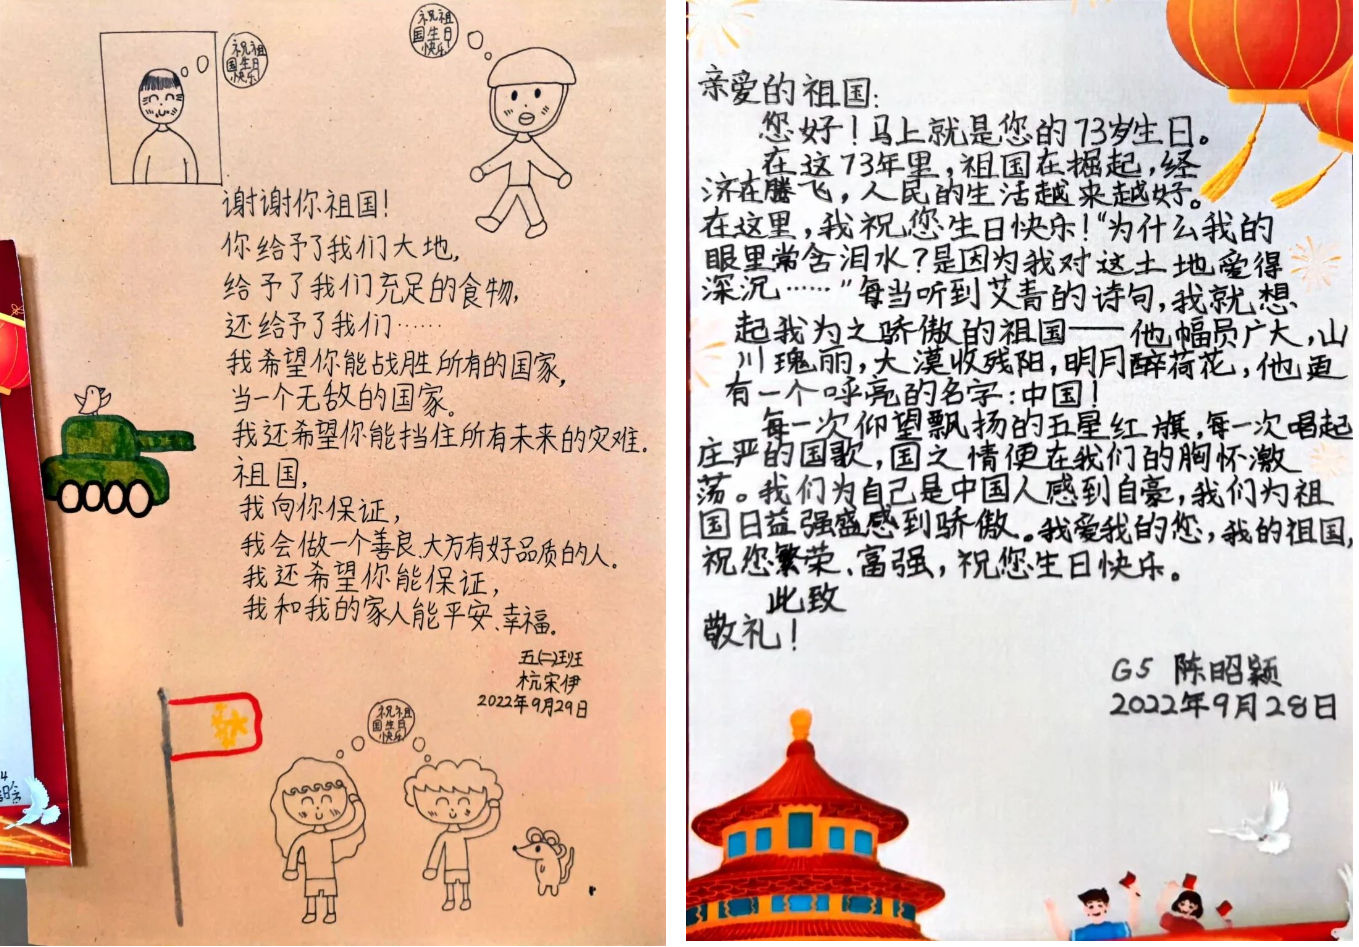 祝祖
国生日
快乐!
祝祖
国生日
快乐!
谢谢你祖国!
你给予了我们大地,
给予了我们充足的食物,
还给予了我们……
我希望你能战胜所有的国家,
当一个无敌的国家。
我还希望你能挡住所有未来的灾难.
祖国,
我向你保证,
我会做一个善良、大方有好品质的人.
我还希望你能保证,
我和我的家人能平安、幸福。
五(二)班
杭宋伊
2022年9月29日
祝祖
国生日
快乐!
亲爱的祖国:
您好!马上就是您的73岁生日。
在这73年里,祖国在掘起,经
济在腾飞,人民的生活越来越好。
在这里,我祝您生日快乐!“为什么我的
眼里常含泪水?是因为我对这土地爱得
深沉……”每当听到艾青的诗句,我就想
起我为之骄傲的祖国——他幅员广大,山
川瑰丽,大漠收残阳,明月醉荷花,他更
有一个呼亮的名字:中国!
每一次仰望飘扬的五星红旗,每一次唱起
庄严的国歌,国之情便在我们的胸怀激
荡。我们为自己是中国人感到自豪,我们为祖
国日益强盛感到骄傲。我爱我的您,我的祖国,
祝您繁荣、富强,祝您生日快乐。
此致
敬礼!
G5 陈昭颖
2022年9月28日